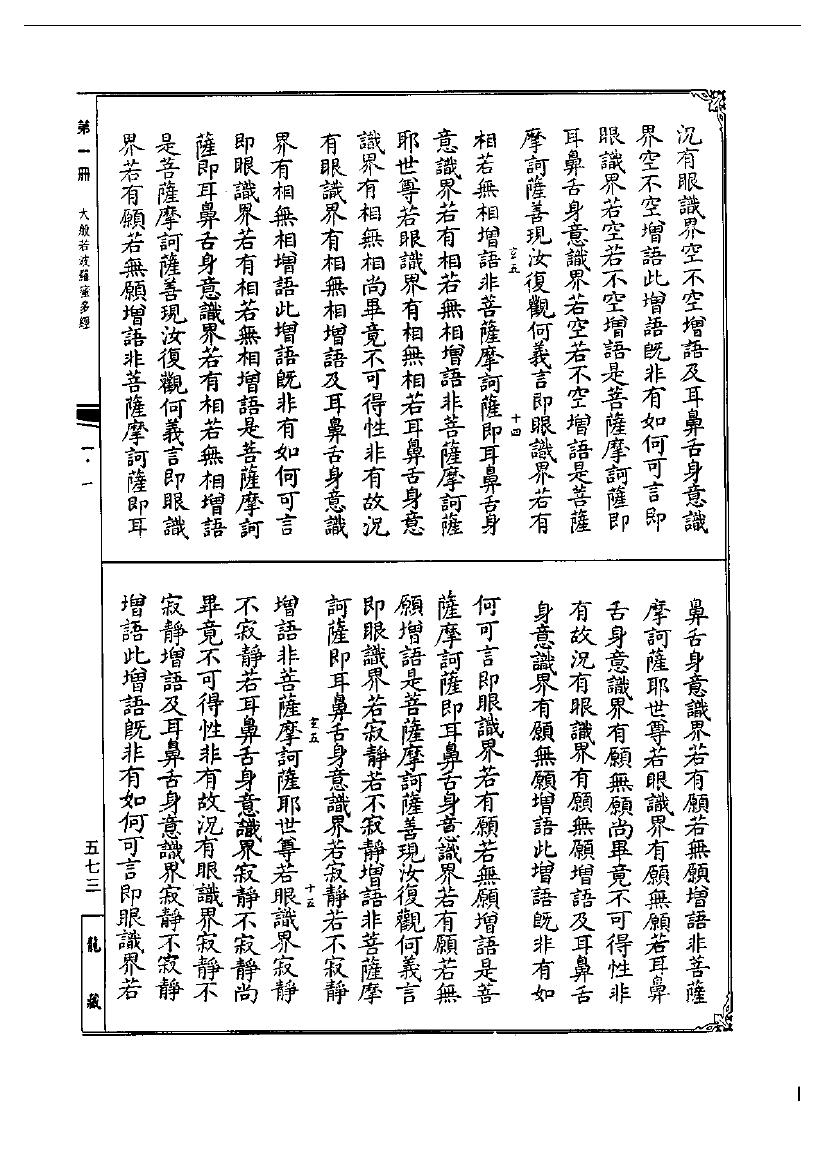 況有眼識界空不空增語及耳鼻舌身意識
界空不空增語此增語既非有如何可言即
眼識界若空若不空增語是菩薩摩訶薩即
耳鼻舌身意識界若空若不空增語是菩薩
摩訶薩善現汝復觀何義言即眼識界若有
玄五
十四
相若無相增語非菩薩摩訶薩即耳鼻舌身
意識界若有相若無相增語非菩薩摩訶薩
耶世尊若眼識界有相無相若耳鼻舌身意
識界有相無相尚畢竟不可得性非有故況
有眼識界有相無相增語及耳鼻舌身意識
界有相無相增語此增語既非有如何可言
即眼識界若有相若無相增語是菩薩摩訶
薩即耳鼻舌身意識界若有相若無相增語
是菩薩摩訶薩善現汝復觀何義言即眼識
界若有願若無願增語非菩薩摩訶薩即耳
鼻舌身意識界若有願若無願增語非菩薩
摩訶薩耶世尊若眼識界有願無願若耳鼻
舌身意識界有願無願尚畢竟不可得性非
有故況有眼識界有願無願增語及耳鼻舌
身意識界有願無願增語此增語既非有如
何可言即眼識界若有願若無願增語是菩
薩摩訶薩即耳鼻舌身意識界若有願若無
願增語是菩薩摩訶薩善現汝復觀何義言
即眼識界若寂靜若不寂靜增語非菩薩摩
訶薩即耳鼻舌身意識界若寂靜若不寂靜
玄五
十五
增語非菩薩摩訶薩耶世尊若眼識界寂靜
不寂靜若耳鼻舌身意識界寂靜不寂靜尚
畢竟不可得性非有故況有眼識界寂靜不
寂靜增語及耳鼻舌身意識界寂靜不寂靜
增語此增語既非有如何可言即眼識界若
第一冊 大般若波羅蜜多經
一·一
五七三
龍藏